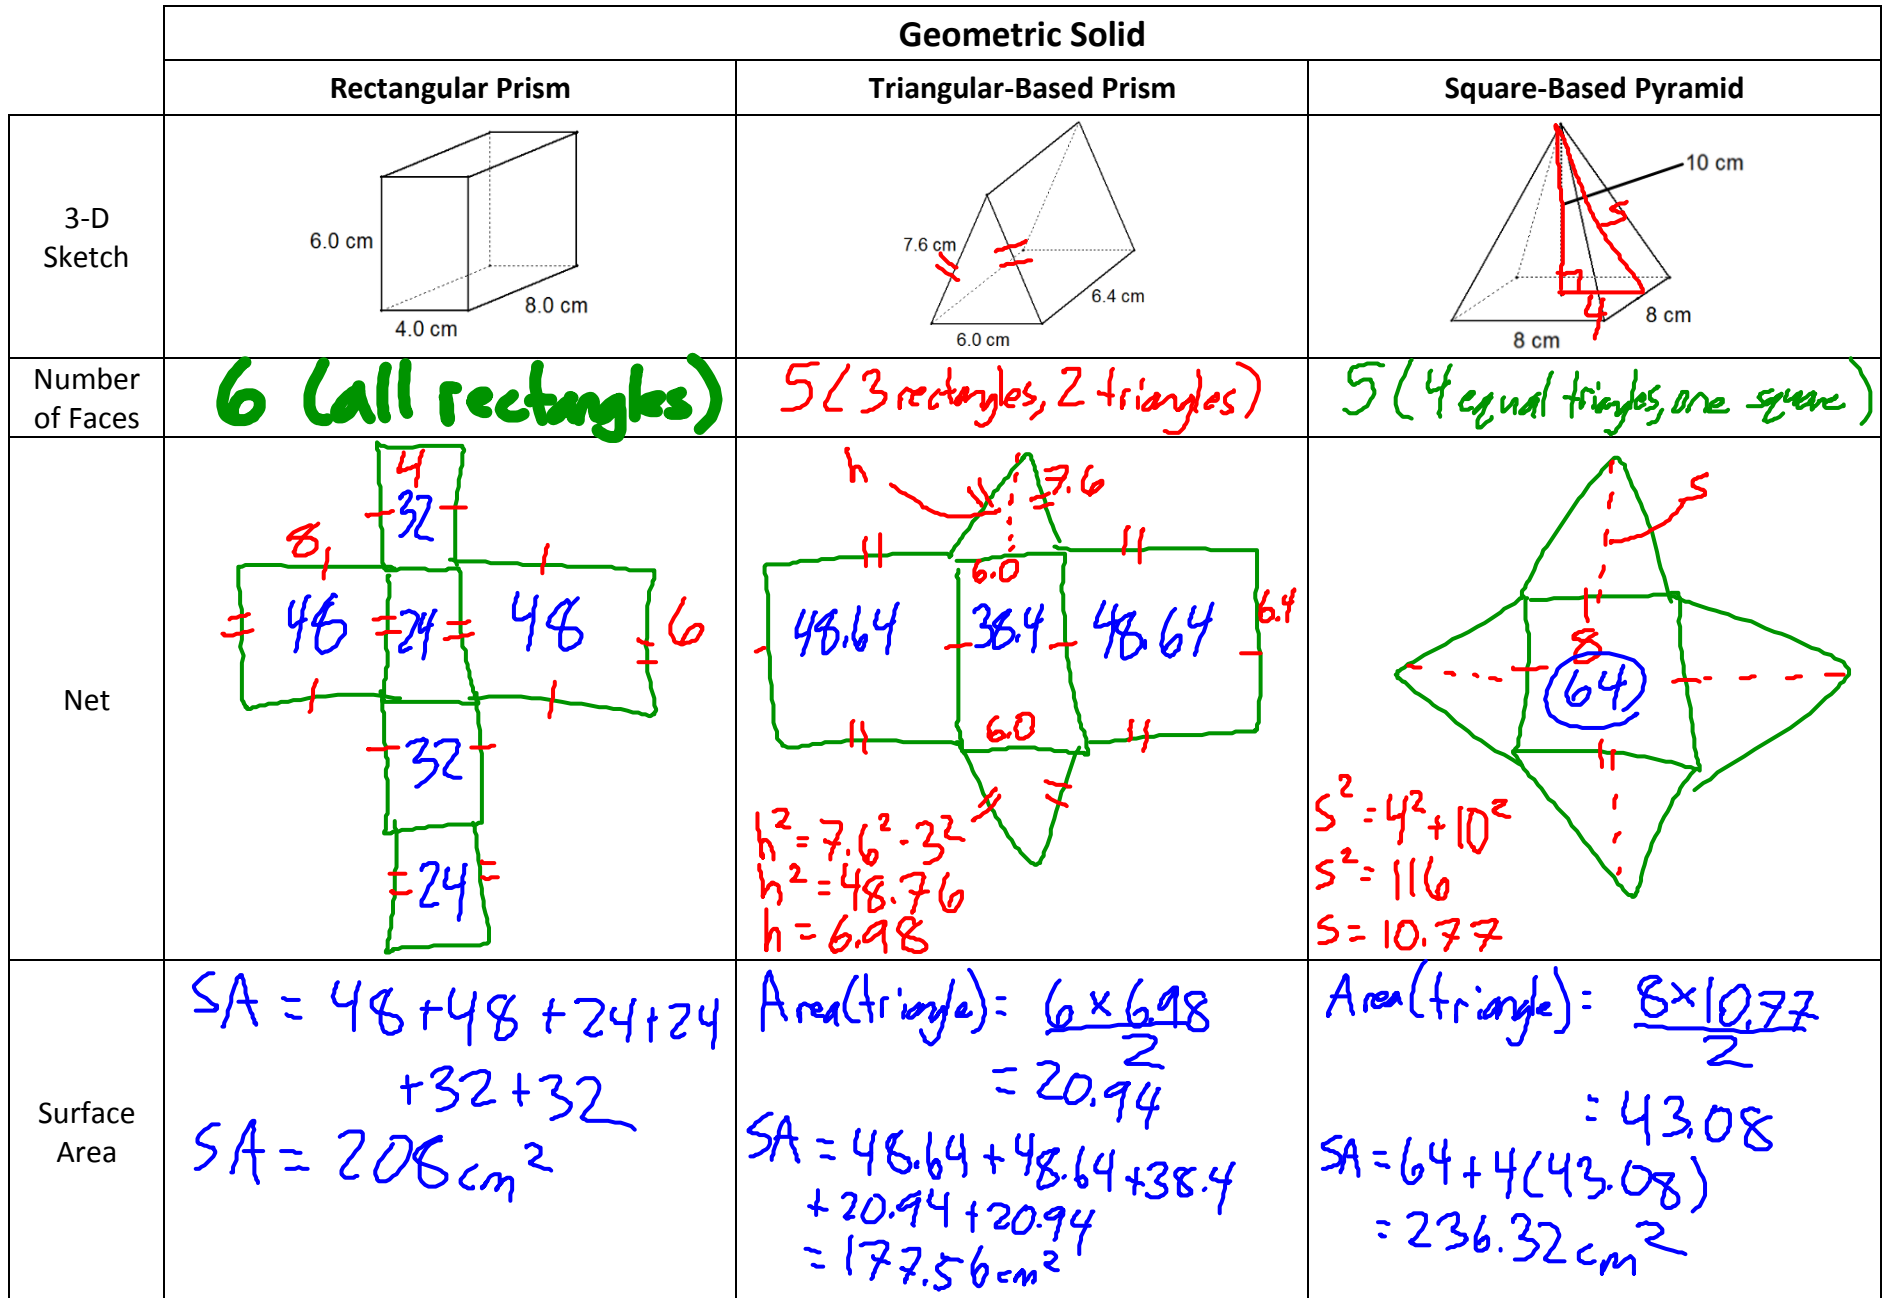 Geometric Solid
Rectangular Prism
Triangular-Based Prism
Square-Based Pyramid
3-D
Sketch
6.0 cm
8.0 cm
4.0 cm
7.6 cm
6.4 cm
6.0 cm
10 cm
s
4
8 cm
8 cm
Number
of Faces
6 (all rectangles)
5 (3 rectangles, 2 triangles)
5 (4 equal triangles, one square)
Net
4
32
8
48
24
48
6
32
24
h
7.6
6.0
48.64
38.4
48.64
6.4
6.0
h² = 7.6² - 3²
h² = 48.76
h = 6.98
s
8
64
s² = 4² + 10²
s² = 116
s = 10.77
Surface
Area
SA = 48 + 48 + 24 + 24
+ 32 + 32
SA = 208 cm²
Area(triangle) = 6 × 6.98
2
= 20.94
SA = 48.64 + 48.64 + 38.4
+ 20.94 + 20.94
= 177.56 cm²
Area(triangle) = 8 × 10.77
2
= 43.08
SA = 64 + 4(43.08)
= 236.32 cm²